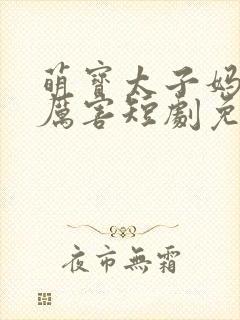 萌寶太子媽
厲害短劇免
夜市無霜